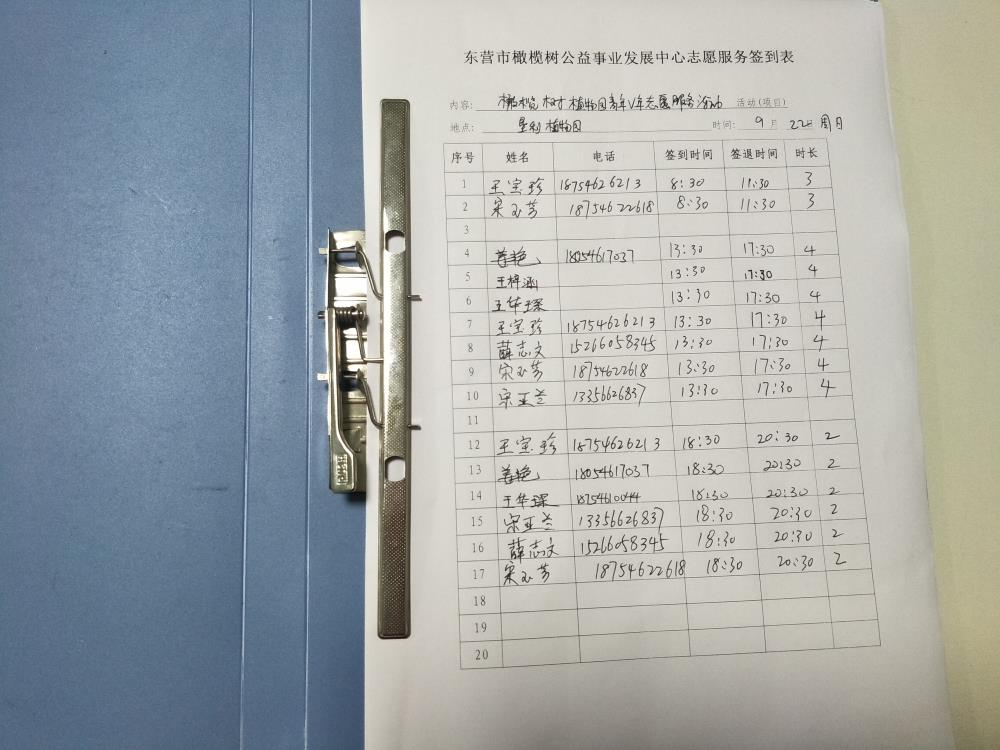 东营市橄榄树公益事业发展中心志愿服务签到表
内容: 橄榄树植物园青年志愿服务活动 活动(项目)
地点: 垦利植物园 时间: 9 月 22日 周日
序号 姓名 电话 签到时间 签退时间 时长
1 王宝珍 18754626213 8:30 11:30 3
2 宋玉芳 18754622618 8:30 11:30 3
3
4 姜艳 18054617037 13:30 17:30 4
5 王梓涵 13:30 17:30 4
6 王华琛 13:30 17:30 4
7 王宝珍 18754626213 13:30 17:30 4
8 薛志文 15266058345 13:30 17:30 4
9 宋玉芳 18754622618 13:30 17:30 4
10 宋亚兰 13356626837 13:30 17:30 4
11
12 王宝珍 18754626213 18:30 20:30 2
13 姜艳 18054617037 18:30 20:30 2
14 王华琛 18754610044 18:30 20:30 2
15 宋亚兰 13356626837 18:30 20:30 2
16 薛志文 15266058345 18:30 20:30 2
17 宋玉芳 18754622618 18:30 20:30 2
18
19
20